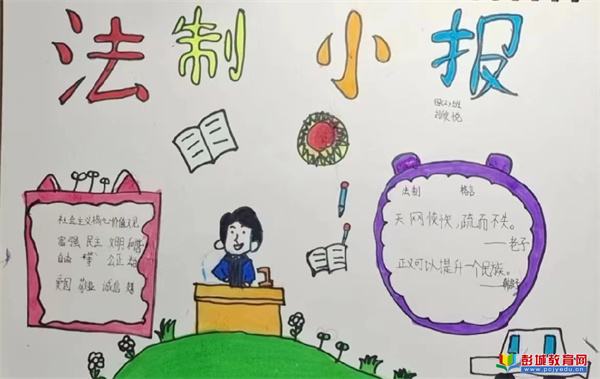 法制小报
四(2)班
社会主义核心价值观
富强 民主 文明 和谐
自由 平等 公正 法治
爱国 敬业 诚信 友善
法制 格言
天网恢恢,疏而不失。
——老子
正义可以提升一个民族。
彭城教育网
www.pcjyedu.cn